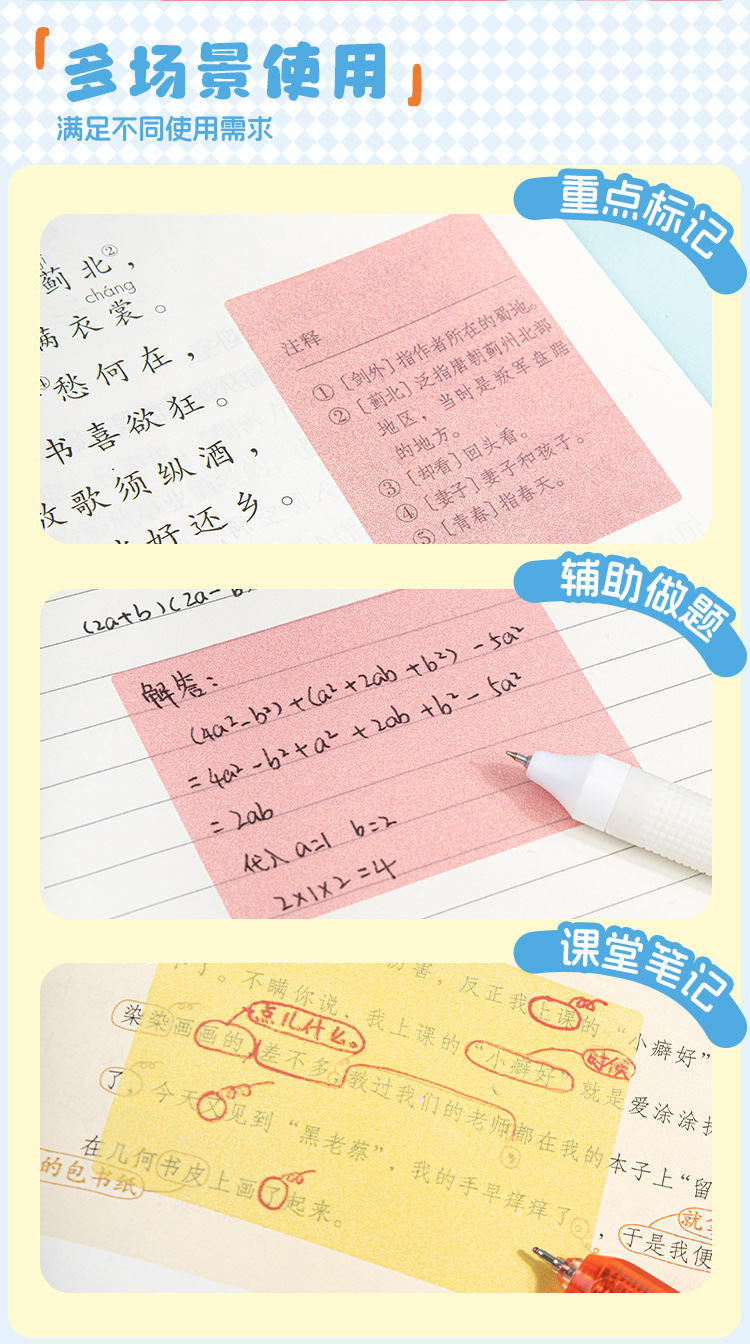 多场景使用
满足不同使用需求
重点标记
蓟北②，
cháng
满衣裳。
愁何在，
书喜欲狂。
放歌须纵酒，
好还乡。
注释
①［剑外］指作者所在的蜀地。
②［蓟北］泛指唐朝蓟州北部
地区，当时是叛军盘踞
的地方。
③［却看］回头看。
④［妻子］妻子和孩子。
⑤［青春］指春天。
辅助做题
(2a+b)(2a-b
解答：
(4a²-b²)+(a²+2ab+b²)-5a²
=4a²-b²+a²+2ab+b²-5a²
=2ab
代入 a=1 b=2
2×1×2=4
课堂笔记
不瞒你说，我上课的“小癖好”就是爱涂涂
厉害，反正我上课的“小癖好”
点儿什么。
时候
染染画画的，差不多，教过我们的老师都在我的本子上“留
了，今天又见到“黑老蔡”，我的手早痒痒了，于是我便
在几何书皮上画了起来。
的包书纸